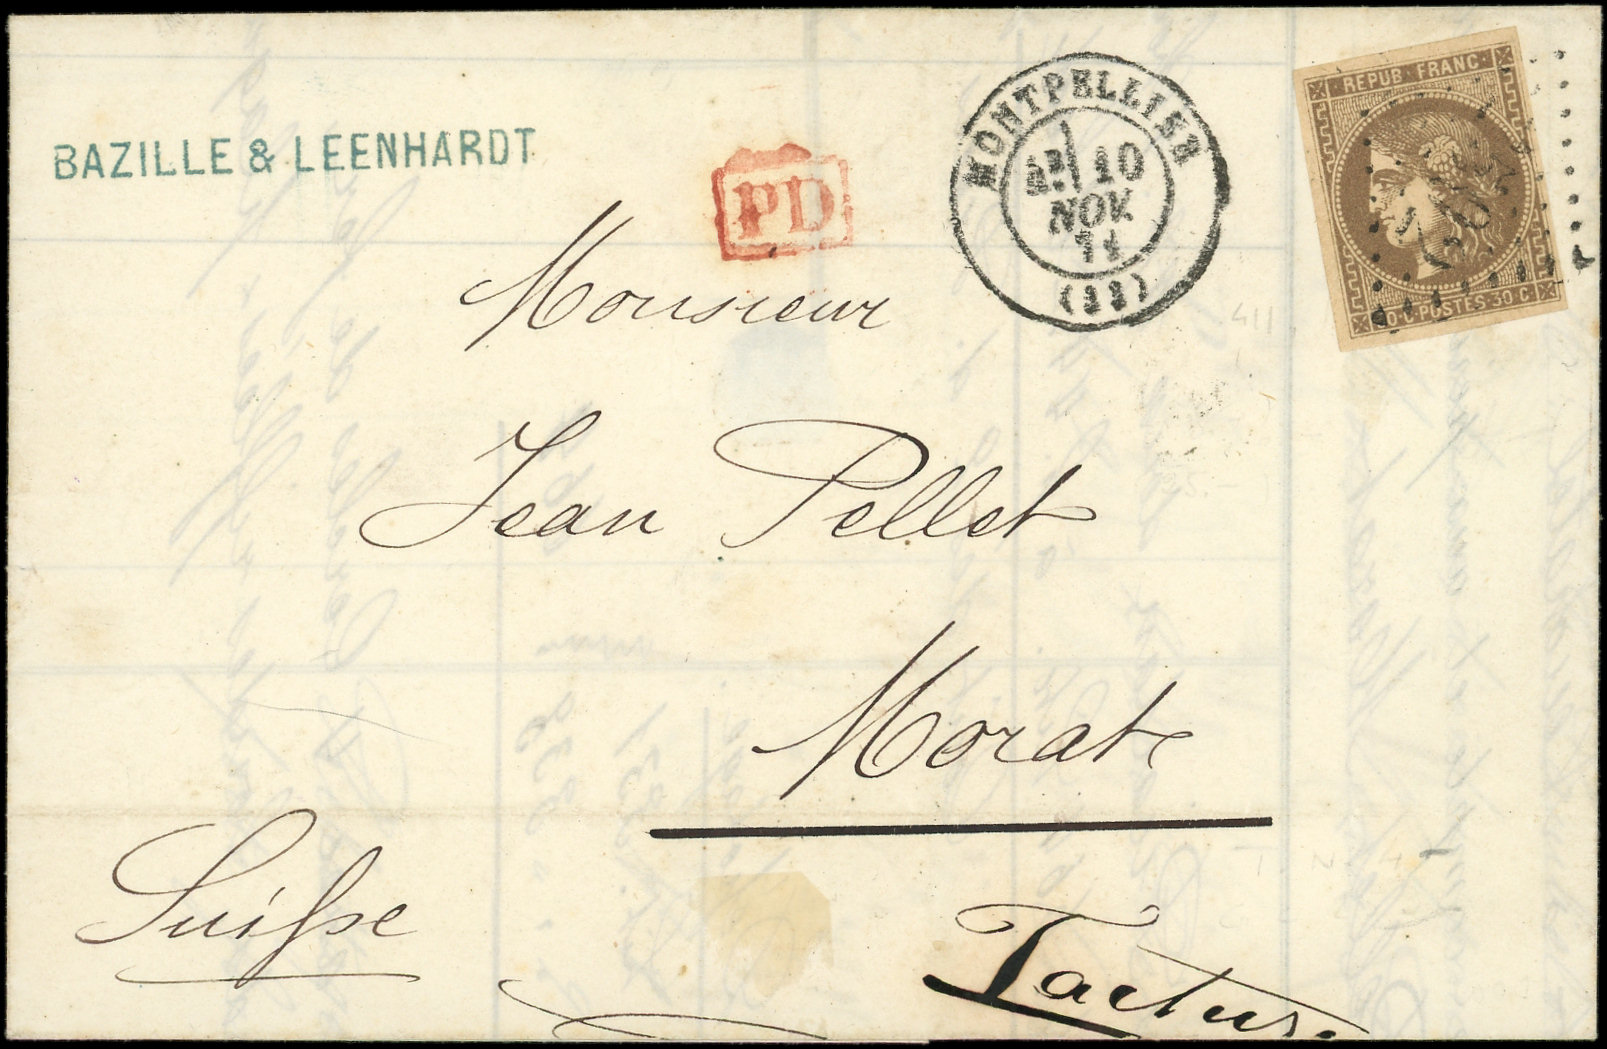 BAZILLE & LEENHARDT
PD
MONTPELLIER
10
NOV.
71
(33)
REPUB·FRANC·
30·C·POSTES·30·C
Monsieur
Jean Pellet
Morat
Suisse
Factur.